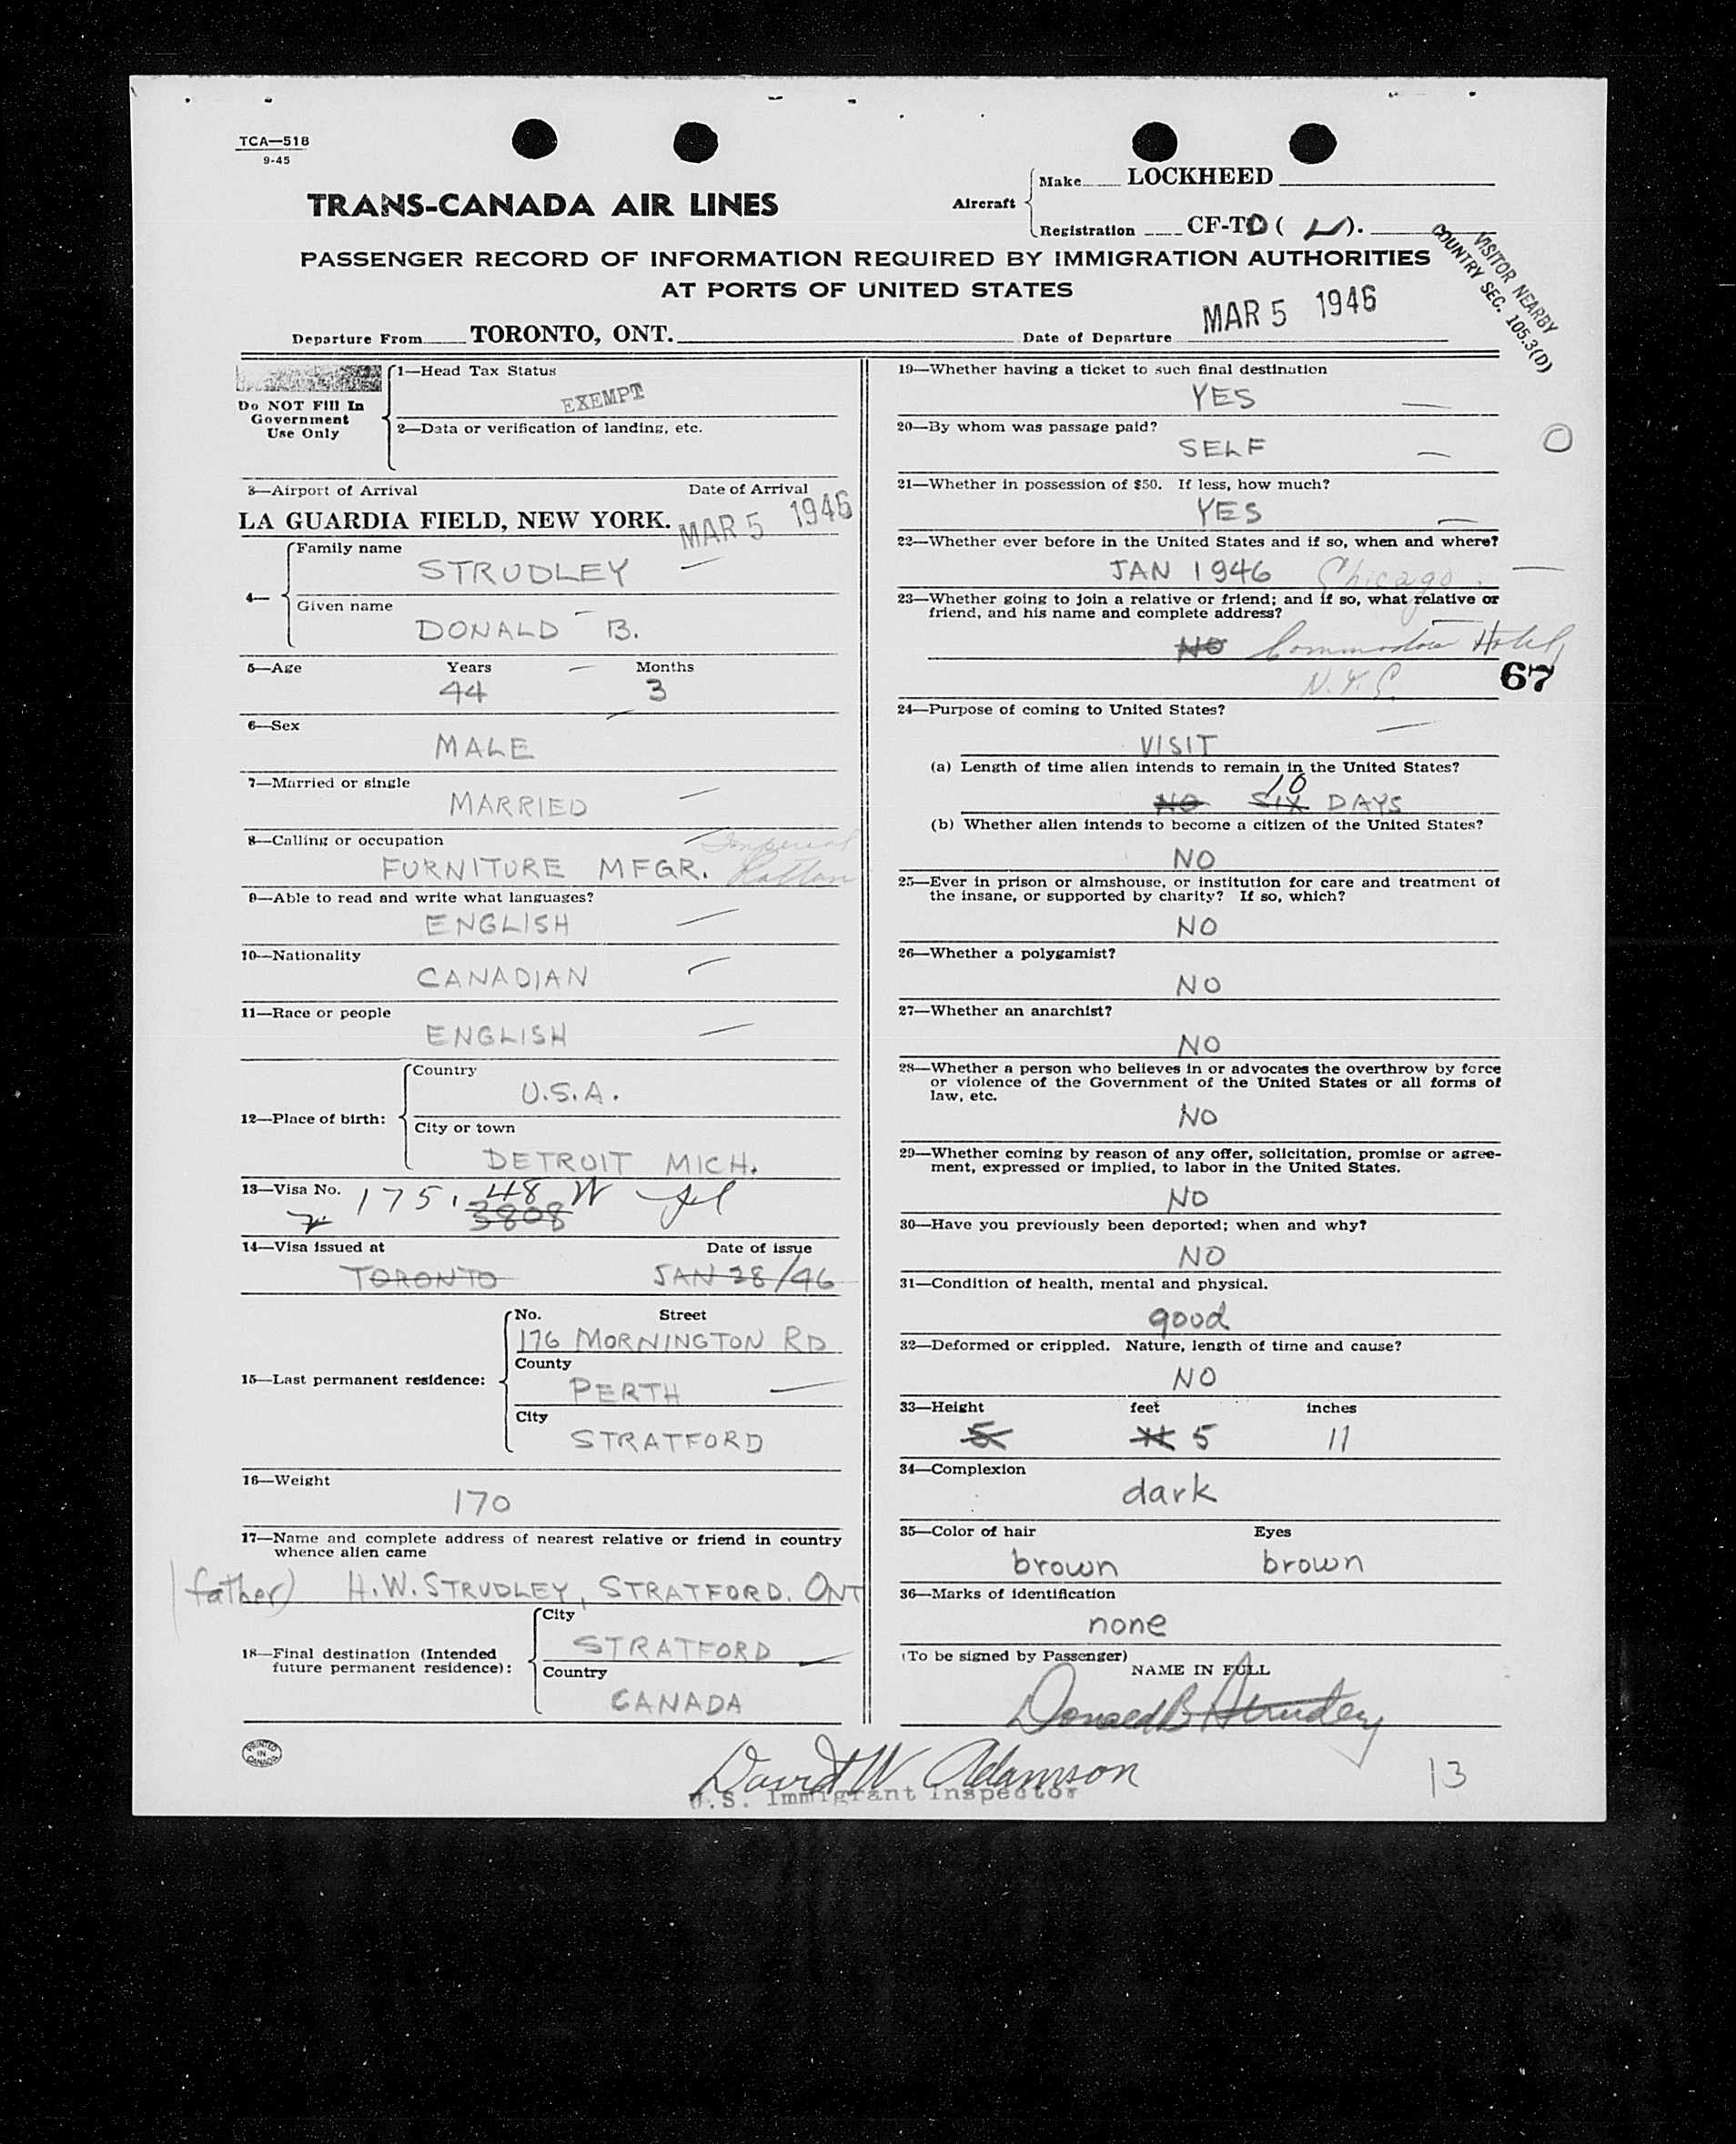 TCA—518
9-45
TRANS-CANADA AIR LINES
Aircraft
Make LOCKHEED
Registration CF-T ( ).
PASSENGER RECORD OF INFORMATION REQUIRED BY IMMIGRATION AUTHORITIES
AT PORTS OF UNITED STATES
VISITOR NEARBY
COUNTRY SEC. 105.3(D)
Departure From TORONTO, ONT.
Date of Departure MAR 5 1946
Do NOT Fill In
Government
Use Only
1—Head Tax Status
EXEMPT
2—Data or verification of landing, etc.
3—Airport of Arrival Date of Arrival
LA GUARDIA FIELD, NEW YORK. MAR 5 1946
4—
Family name
STRUDLEY
Given name
DONALD B.
5—Age Years Months
44 3
6—Sex
MALE
7—Married or single
MARRIED
8—Calling or occupation
FURNITURE MFGR. Imperial
Rattan
9—Able to read and write what languages?
ENGLISH
10—Nationality
CANADIAN
11—Race or people
ENGLISH
12—Place of birth:
Country
U.S.A.
City or town
DETROIT MICH.
13—Visa No. 175. 48
3808
14—Visa issued at Date of issue
TORONTO JAN 28/46
15—Last permanent residence:
No. Street
176 MORNINGTON RD
County
PERTH
City
STRATFORD
16—Weight
170
17—Name and complete address of nearest relative or friend in country
whence alien came
(father) H.W. STRUDLEY, STRATFORD. ONT
18—Final destination (Intended
future permanent residence):
City
STRATFORD
Country
CANADA
PRINTED
IN
CANADA
19—Whether having a ticket to such final destination
YES
20—By whom was passage paid?
SELF
O
21—Whether in possession of $50. If less, how much?
YES
22—Whether ever before in the United States and if so, when and where?
JAN 1946 Chicago.
23—Whether going to join a relative or friend; and if so, what relative or
friend, and his name and complete address?
NO Commodore Hotel,
N.Y.C. 67
24—Purpose of coming to United States?
VISIT
(a) Length of time alien intends to remain in the United States?
10
NO SIX DAYS
(b) Whether alien intends to become a citizen of the United States?
NO
25—Ever in prison or almshouse, or institution for care and treatment of
the insane, or supported by charity? If so, which?
NO
26—Whether a polygamist?
NO
27—Whether an anarchist?
NO
28—Whether a person who believes in or advocates the overthrow by force
or violence of the Government of the United States or all forms of
law, etc.
NO
29—Whether coming by reason of any offer, solicitation, promise or agree-
ment, expressed or implied, to labor in the United States.
NO
30—Have you previously been deported; when and why?
NO
31—Condition of health, mental and physical.
good
32—Deformed or crippled. Nature, length of time and cause?
NO
33—Height feet inches
5 11 5 11
34—Complexion
dark
35—Color of hair Eyes
brown brown
36—Marks of identification
none
(To be signed by Passenger)
NAME IN FULL
Donald B Strudley
David W Adamson
U.S. Immigrant Inspector
13